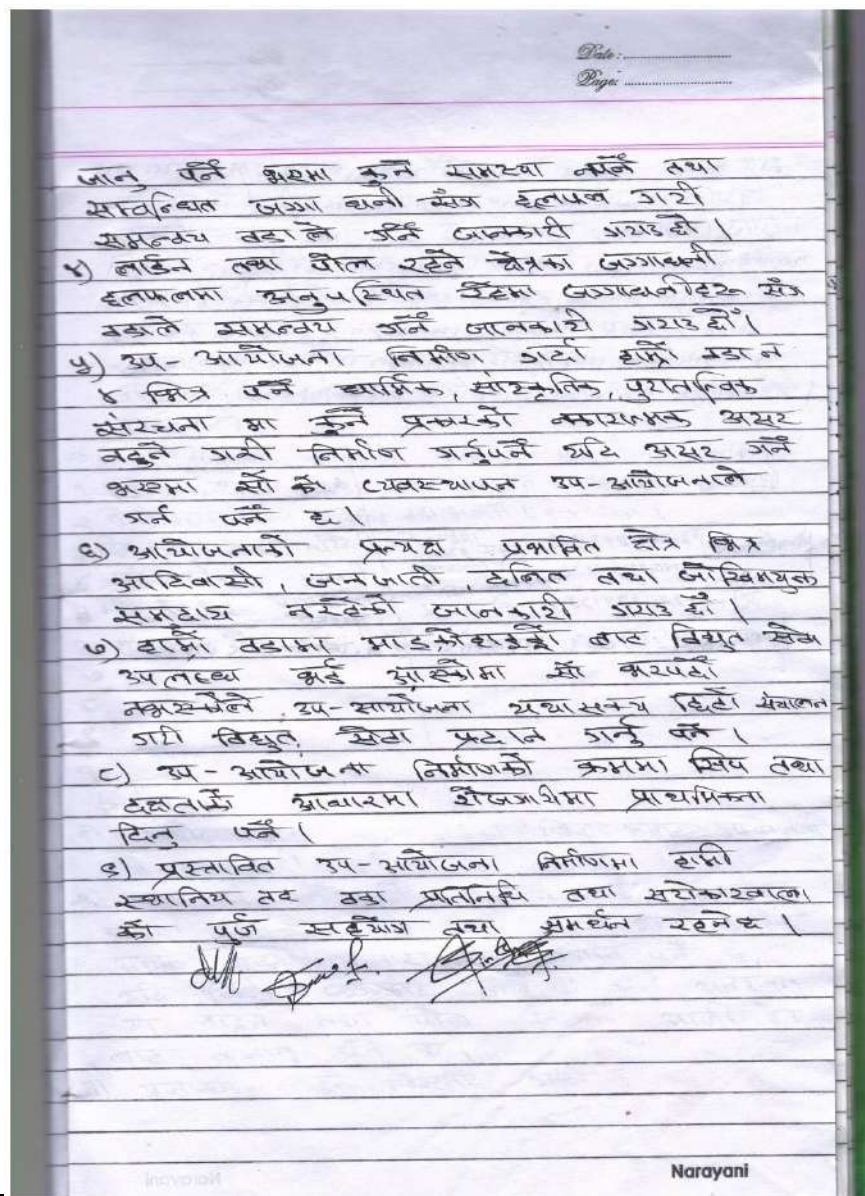 Date: ........................
Page: ........................
जानु पर्ने भएमा कुनै समस्या नपर्ने तथा
सम्वन्धित जग्गा धनी सँग छलफल गरी
समन्वय वडा ले गर्ने जानकारी गराउछौ ।
४) लाईन तथा पोल रहने क्षेत्रका जग्गाधनी
छलफलमा अनुपस्थित रहेमा जग्गाधनीहरु सँग
वडाले समन्वय गर्ने जानकारी गराउछौँ ।
५) उप- आयोजना निर्माण गर्दा हाम्रो वडा न
४ भित्र पर्ने धार्मिक, सांस्कृतिक, पुरातात्विक
संरचना मा कुनै प्रकारको नकारात्मक असर
नहुने गरी निर्माण गर्नुपर्ने यदि असर गर्ने
भएमा सो को व्यवस्थापन उप-आयोजनाले
गर्न पर्ने छ।
६) आयोजनाको प्रत्यक्ष प्रभावित क्षेत्र भित्र
आदिवासी, जनजाती दलित तथा जोखिमयुक्त
समुदाय नरहेको जानकारी गराउछौ ।
७) हामो वडामा माइक्रोहाइड्रो बाट विद्युत सेवा
उपलब्ध भई आएकोमा सो भरपर्दो
नभएकोले उप-आयोजना यथासक्य छिटो संचालन
गरी विद्युत सेवा प्रदान गर्नु पर्ने ।
८) उप - आयोजना निर्माणको क्रममा सिप तथा
दक्षताको आधारमा रोजगारीमा प्राथमिकता
दिनु पर्ने ।
९) प्रस्तावित उप-आयोजना निर्माणमा हामी
स्थानिय तह वडा प्रतिनिधि तथा सरोकारवाला
को पुर्ण सहयोग तथा समर्थन रहनेछ ।
Narayani